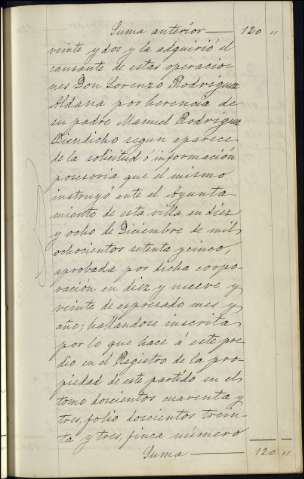 Suma anterior — 120 "
veinte y dos y la adquirió el
causante de estas operacio-
nes Don Lorenzo Rodriguez
Aldana por herencia de
su padre Manuel Rodriguez
Biendicho segun aparece
de la solicitud é información
posesoria que el mismo
instruyó ante el Ayunta-
miento de esta villa en diez
y ocho de Diciembre de mil
ochocientos setenta y cinco,
aprobada por dicha corpo-
ración en diez y nueve y
veinte de espresado mes y
año; hallandose inscrita
por lo que hace á este pre-
dio en el Registro de la pro-
piedad de este partido en el
tomo doscientos cuarenta y
tres, folio doscientos trein-
ta y tres, finca número
Suma — 120 "